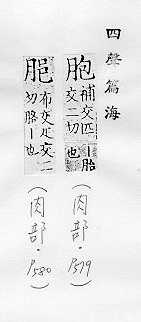 四聲篇海
胞 補交匹交二切 胎也
(肉部·P579)
胞 布交疋交二切胳丨也
(肉部·P580)